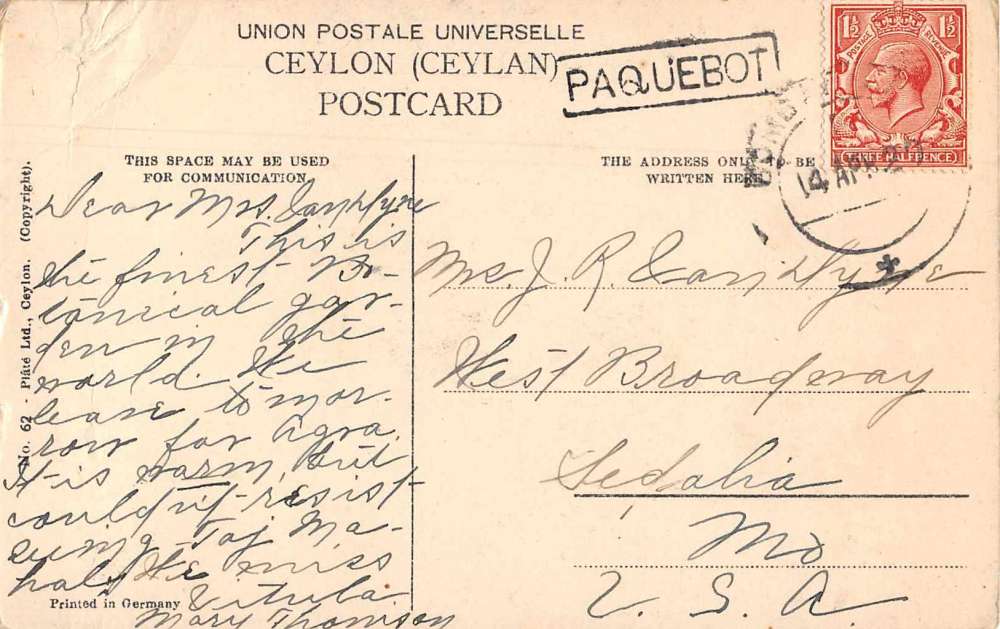 UNION POSTALE UNIVERSELLE
CEYLON (CEYLAN)
POSTCARD
PAQUEBOT
1½ 1½
POSTAGE REVENUE
THREE HALFPENCE
14 APR
THIS SPACE MAY BE USED
FOR COMMUNICATION
THE ADDRESS ONLY TO BE
WRITTEN HERE
No. 62 - Plâté Ltd., Ceylon. (Copyright).
Dear Mrs.
This is
the finest Bo-
tanical gar-
den in the
world. We
leave tomor-
row for Agra.
It is warm but
couldn't resist
seeing Taj Ma-
hal. We miss
Mary Thomson
Printed in Germany
Mrs. J. R.
West Broadway
Sedalia
Mo
U. S. A.